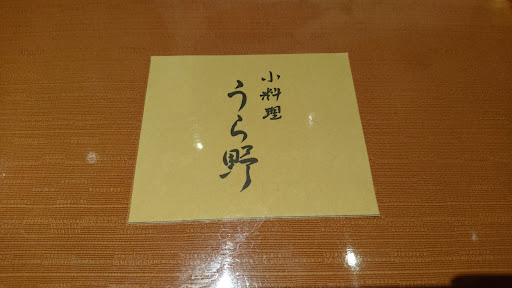 小料理
うら野